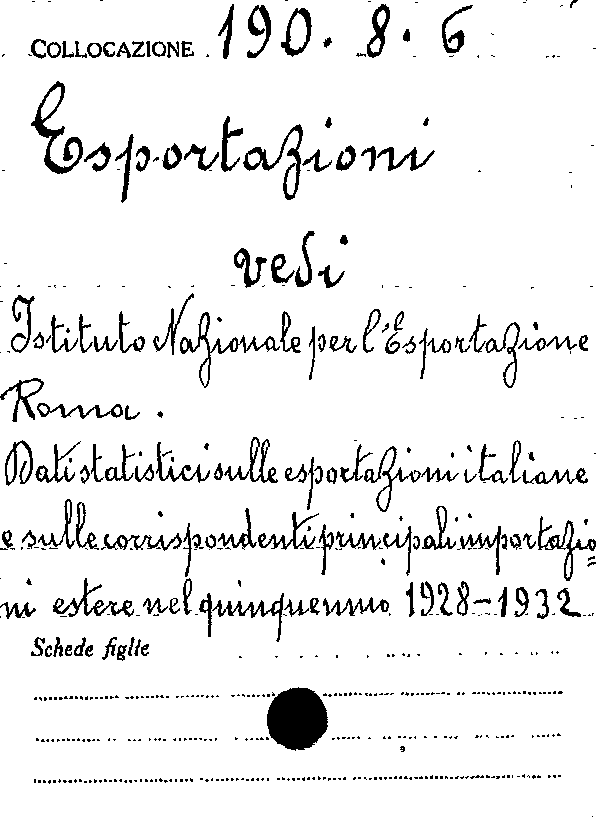 COLLOCAZIONE 190.8.6
Esportazioni
vedi
Istituto Nazionale per l'Esportazione
Roma.
Dati statistici sulle esportazioni italiane
e sulle corrispondenti principali importazio=
ni estere nel quinquennio 1928-1932
Schede figlie